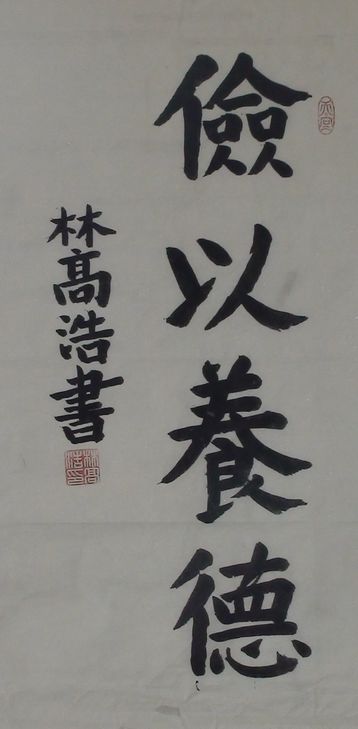 儉以養德
林髙浩書